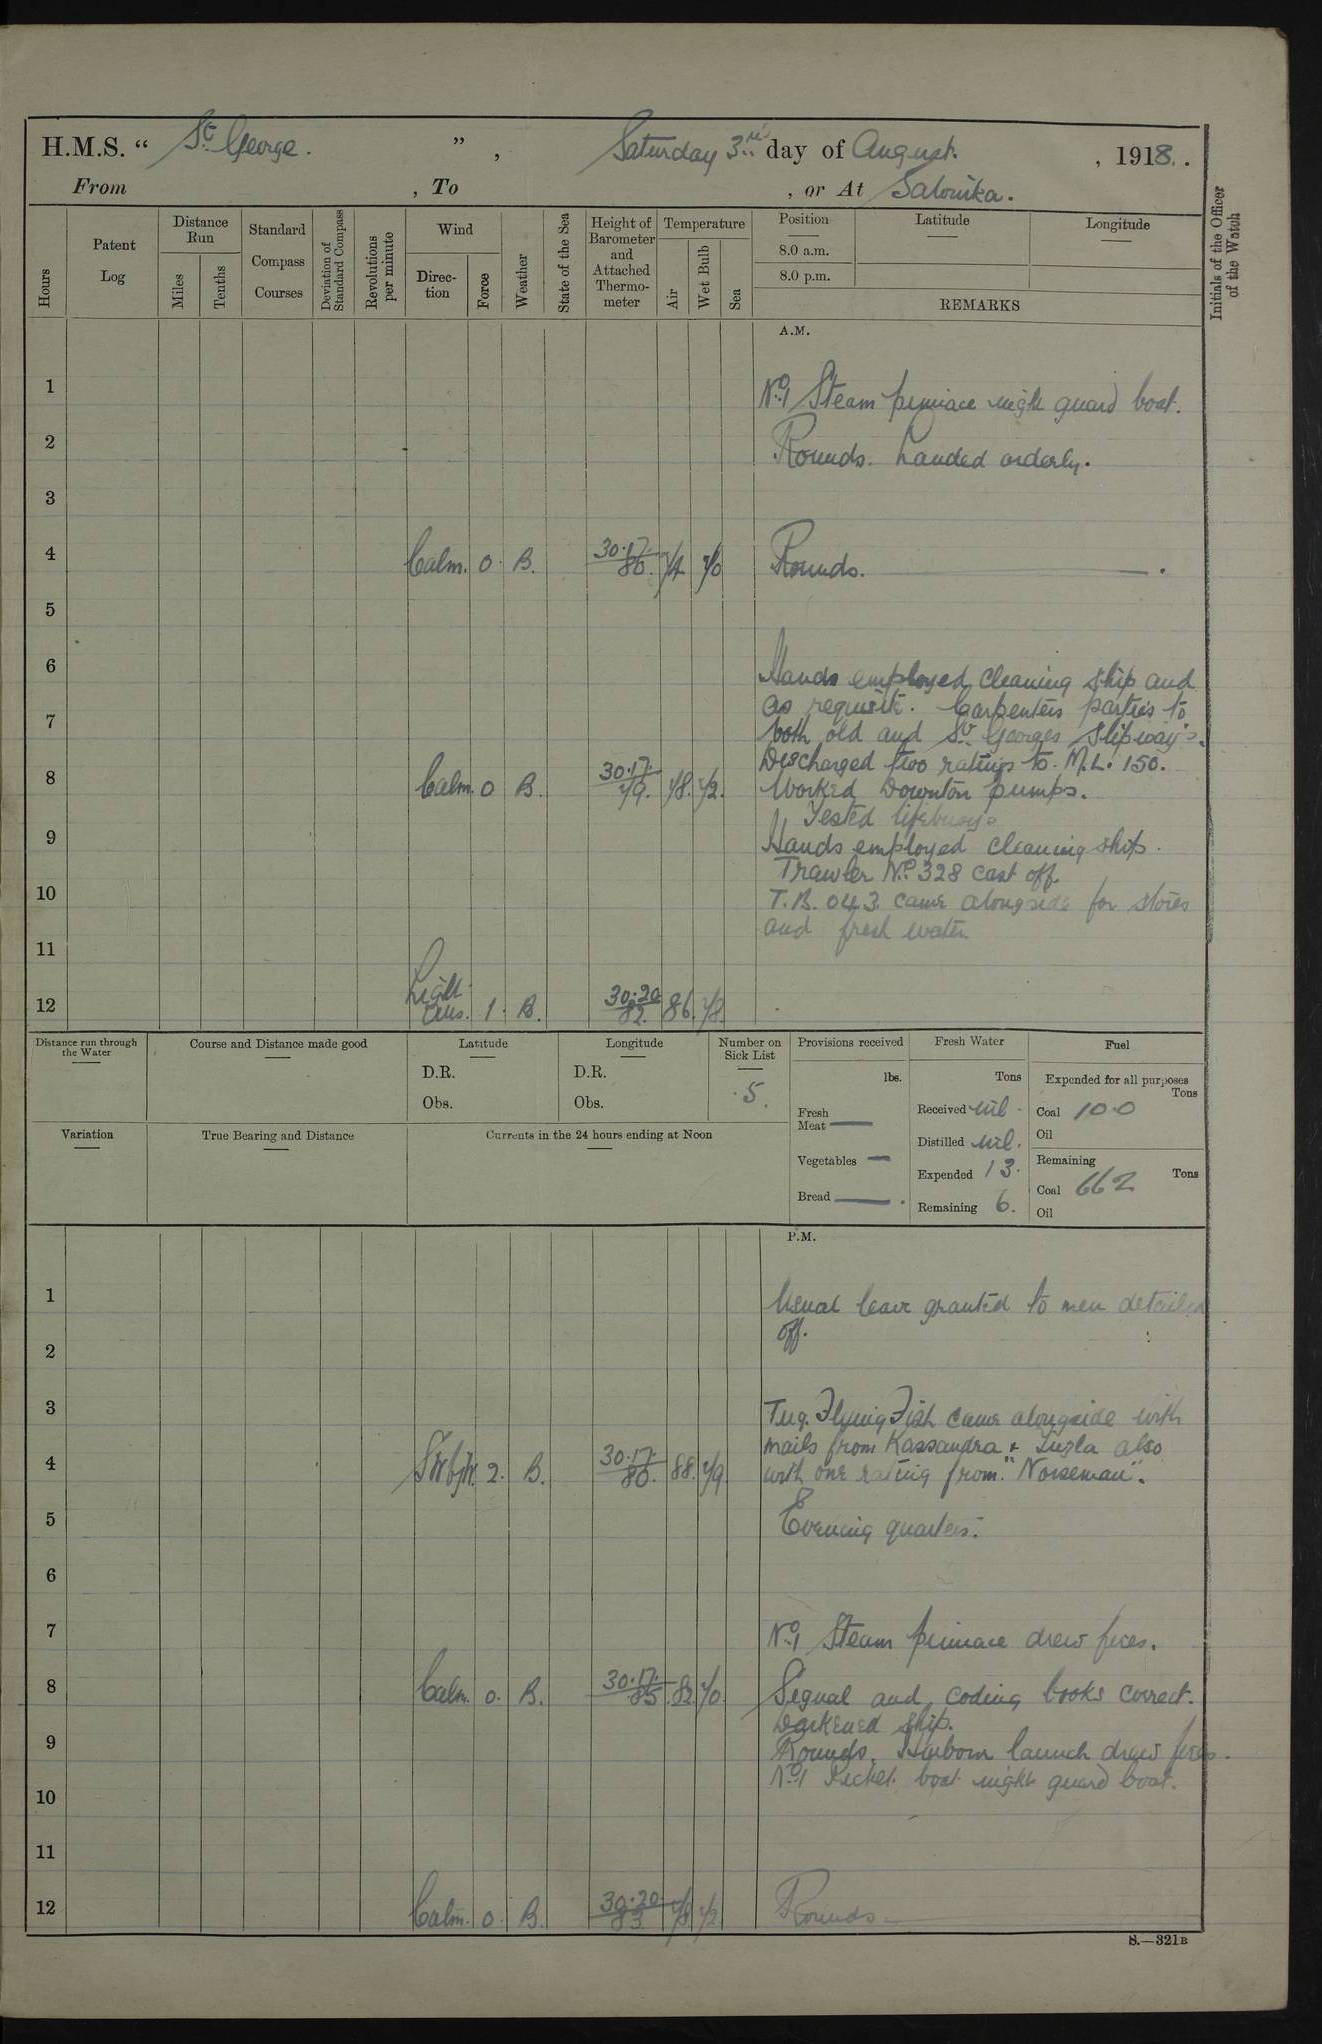 H.M.S. “ St. George. ” , Saturday 3rd day of August. , 1918.
From , To , or At Salonika.
Hours
Patent Log
Distance Run
Miles
Tenths
Standard Compass Courses
Deviation of Standard Compass
Revolutions per minute
Wind
Direc-tion
Force
Weather
State of the Sea
Height of Barometer and Attached Thermo-meter
Temperature
Air
Wet Bulb
Sea
Position
Latitude
Longitude
8.0 a.m.
8.0 p.m.
REMARKS
Initials of the Officer of the Watch
A.M.
1
No. 1 Steam pinnace night guard boat.
2
Rounds. Landed orderly.
3
4 Calm. 0. B. 30.17. 80. 74 70 Rounds.
5
6
Hands employed cleaning ship and
7 as requisite. Carpenters parties to
both old and St. Georges slipway's.
Discharged two ratings to M.L. 150.
8 Calm. 0 B. 30.17. 79. 78. 72. Worked Downton pumps.
Tested lifebuoys
9 Hands employed cleaning ship.
Trawler No. 328 cast off.
10 T.B. 043 came alongside for stores
and fresh water.
11
12 Light airs. 1. B. 30.20 82. 86. 78.
Distance run through the Water
Course and Distance made good
Latitude
D.R.
Obs.
Longitude
D.R.
Obs.
Number on Sick List
5.
Provisions received
lbs.
Fresh Meat —
Vegetables —
Bread —
Fresh Water
Tons
Received nil.
Distilled nil.
Expended 13.
Remaining 6.
Fuel
Expended for all purposes
Tons
Coal 10.0
Oil
Remaining
Tons
Coal 662
Oil
Variation
True Bearing and Distance
Currents in the 24 hours ending at Noon
P.M.
1 Usual leave granted to men detailed
off.
2
3 Tug. Flying Fish came alongside with
mails from Kassandra + Tuzla also
4 SWbyW. 2. B. 30.17. 80. 88. 79 with one rating from "Norseman".
5 Evening quarters.
6
7 No. 1 Steam pinnace drew fires.
8 Calm. 0. B. 30.17. 85. 82. 70. Signal and coding books correct.
Darkened ship.
9 Rounds. launch drew fires.
No. 1 Picket boat night guard boat.
10
11
12 Calm. 0. B. 30.20. 83 78 72 Rounds.
S.—321B